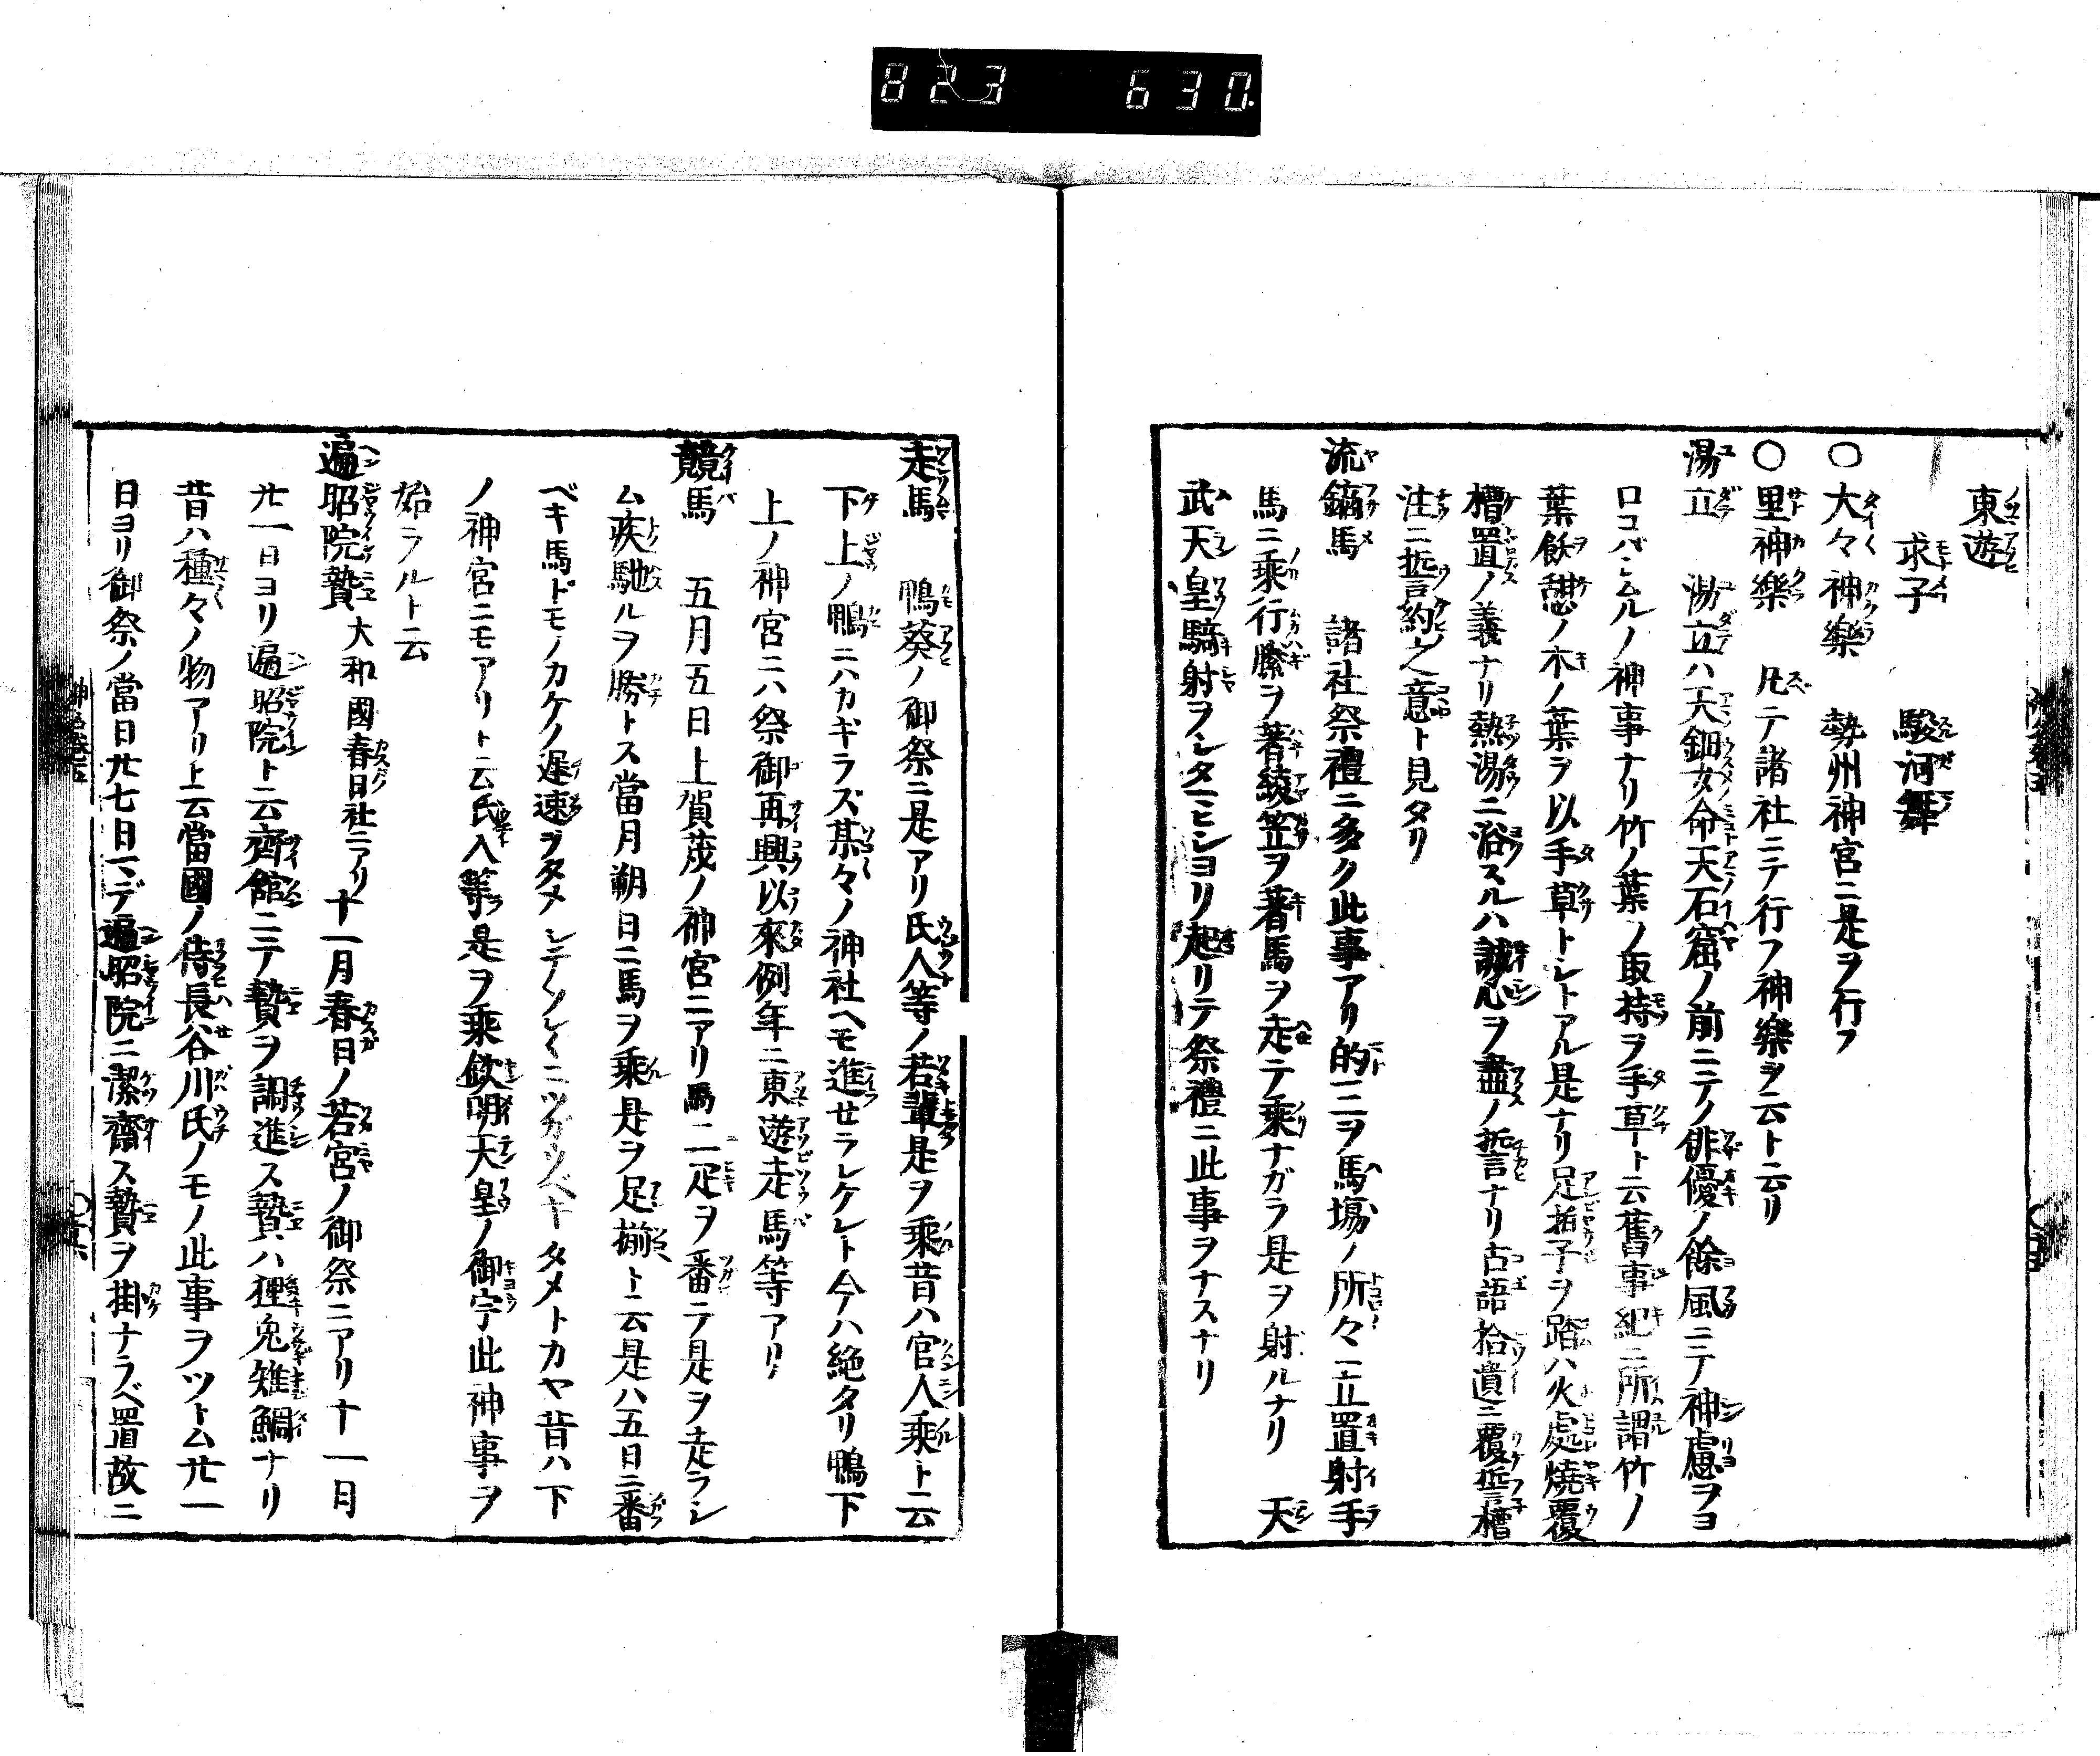 823 630.
東遊
求子 駿河舞
○大々神樂 勢州神宮ニ是ヲ行フ
○里神樂 凡テ諸社ニテ行フ神樂ヲ云ト云リ
湯立 湯立ハ天鈿女命天石窟ノ前ニテノ俳優ノ餘風ニテ神慮ヲヨ
ロコバシムルノ神事ナリ竹ノ葉ノ取持ヲ手草ト云舊事紀ニ所謂竹ノ
葉飫憩ノ木ノ葉ヲ以手草トシトアル是ナリ足拍子ヲ踏ハ火處燒覆
槽置ノ義ナリ熱湯ニ浴スルハ誠心ヲ盡ノ誓ナリ古語拾遺ニ覆誓槽
注ニ誓約之意ト見タリ
流鏑馬 諸社祭禮ニ多ク此事アリ的三ヲ馬場ノ所々ニ立置射手
馬ニ乘行縢ヲ著綾笠ヲ著馬ヲ走テ乘ナガラ是ヲ射ルナリ 天
武天皇騎射ヲシタマヒシヨリ起リテ祭禮ニ此事ヲナスナリ
走馬 鴨葵ノ御祭ニ是アリ氏人等ノ若輩是ヲ乘昔ハ官人乘ト云
下上ノ鴨ニハカギラズ某々ノ神社ヘモ進セラレケレト今ハ絶タリ鴨下
上ノ神宮ニハ祭御再興以來例年ニ東遊走馬等アリ
競馬 五月五日上賀茂ノ神宮ニアリ馬二疋ヲ番テ是ヲ走ラシ
ム疾馳ルヲ勝トス當月朔日ニ馬ヲ乘是ヲ足揃ト云是ハ五日ニ番
ベキ馬ドモノカケノ遲速ヲタメシテソレ〱ニツガフベキタメトカヤ昔ハ下
ノ神宮ニモアリト云氏人等是ヲ乘欽明天皇ノ御宇此神事ヲ
始ラルト云
遍昭院贄 大和國春日社ニアリ 十一月春日ノ若宮ノ御祭ニアリ十一日
廿一日ヨリ遍昭院ト云齊館ニテ贄ヲ調進ス贄ハ狸兎雉鯛ナリ
昔ハ種々ノ物アリト云當國ノ侍長谷川氏ノモノ此事ヲツトム廿一
日ヨリ御祭ノ當日廿七日マデ遍昭院ニ潔齋ス贄ヲ掛ナラベ置故ニ